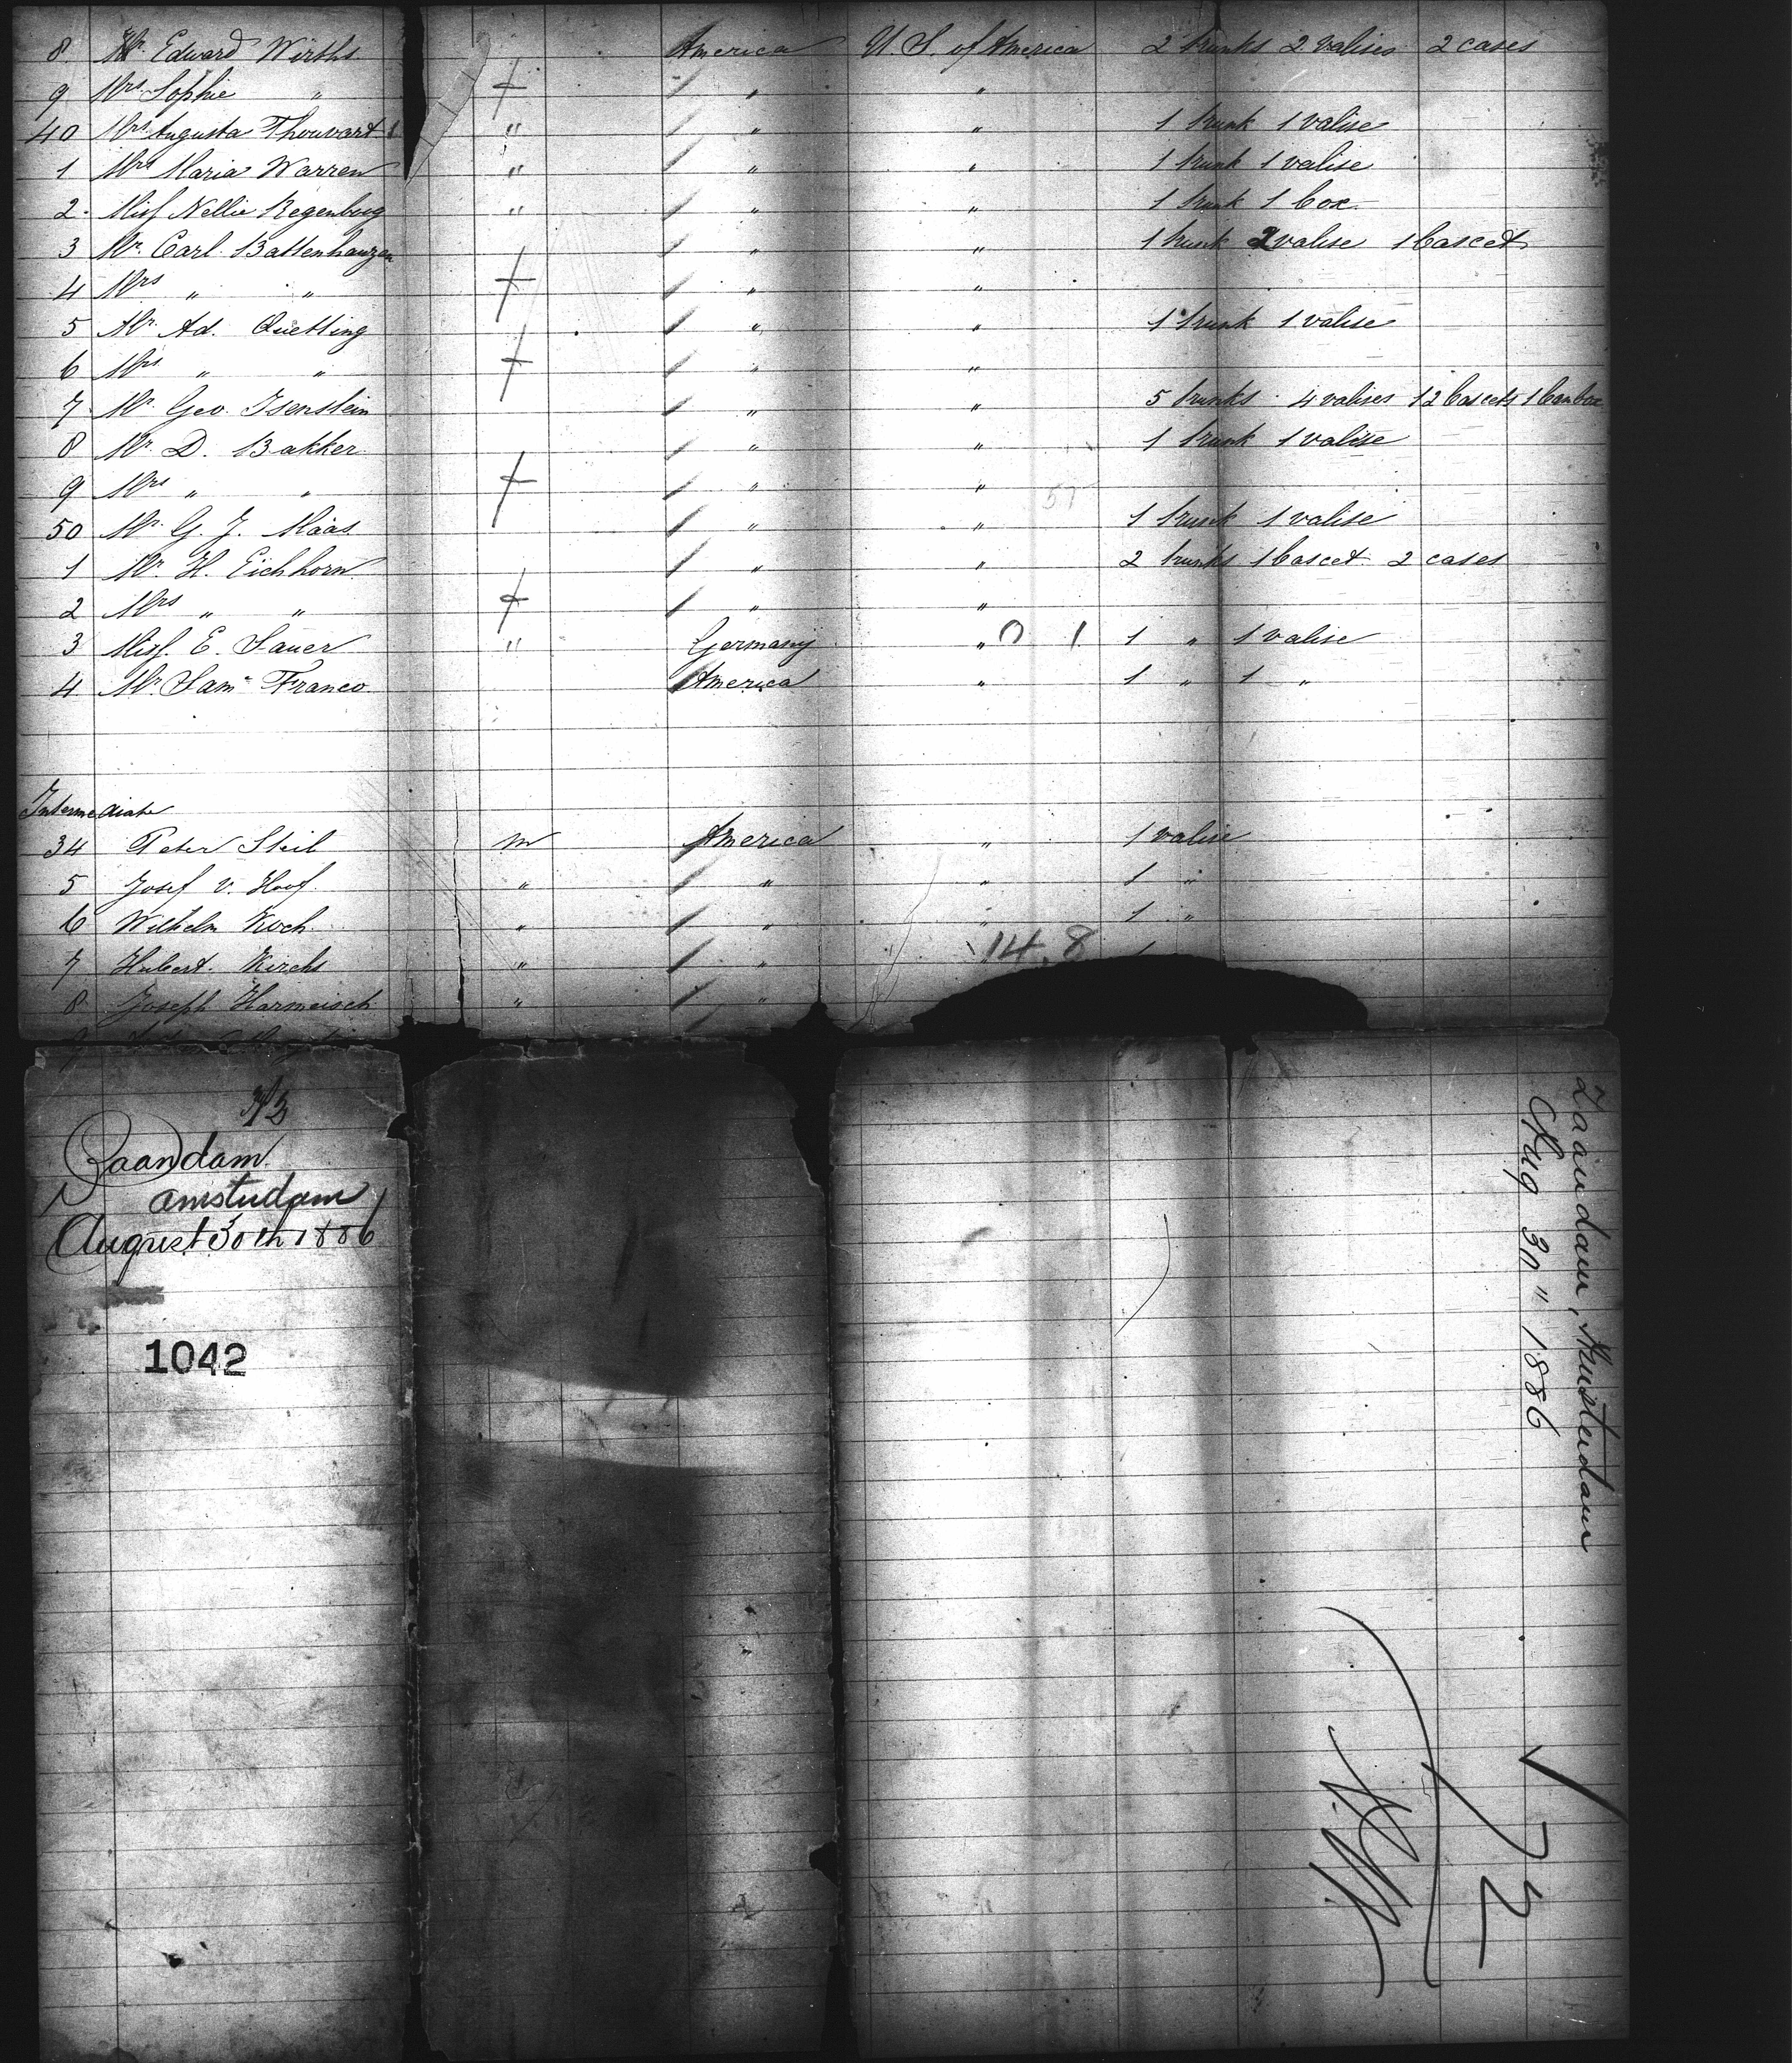 8. Mr. Edward Wirths America U. S. of America 2 trunks 2 valises 2 cases
9 Mrs Sophie " " "
40 Mrs Augusta Thouvart " " " 1 trunk 1 valise
1 Mrs Maria Warren " " " 1 trunk 1 valise
2. Miss Nellie Regenburg " " " 1 trunk 1 box.
3 Mr. Carl Battenhauzen " " 1 trunk 2 valise 1 bascet
4 Mrs " " " "
5 Mr. Ad. Quetting " " 1 trunk 1 valise
6 Mrs " " " "
7 Mr. Geo. Isenstein " " 5 trunks 4 valises 12 bascets 1 banbox
8 Mr. D. Bakker " " 1 trunk 1 valise
9 Mrs " " " " 57
50 Mr. G. J. Maas " " 1 trunk 1 valise
1 Mr. H. Eichhorn " " 2 trunks 1 bascet 2 cases
2 Mrs " " " "
3 Miss E. Sauer " Germany " 0 1 1 " 1 valise
4 Mr Sam Franco America " 1 " 1 "
Intermediate
34 Peter Steil m America " 1 valise
5 Josef v. Hoof " " " 1 "
6 Wilhelm Koch " " " 1 "
7 Hubert Kirchs " " 14.8 1
8 Joseph Harmeisch " "
Zaandam
Amsterdam
August 30th 1886
1042
Zaandam, Amsterdam
Aug 30" 1886